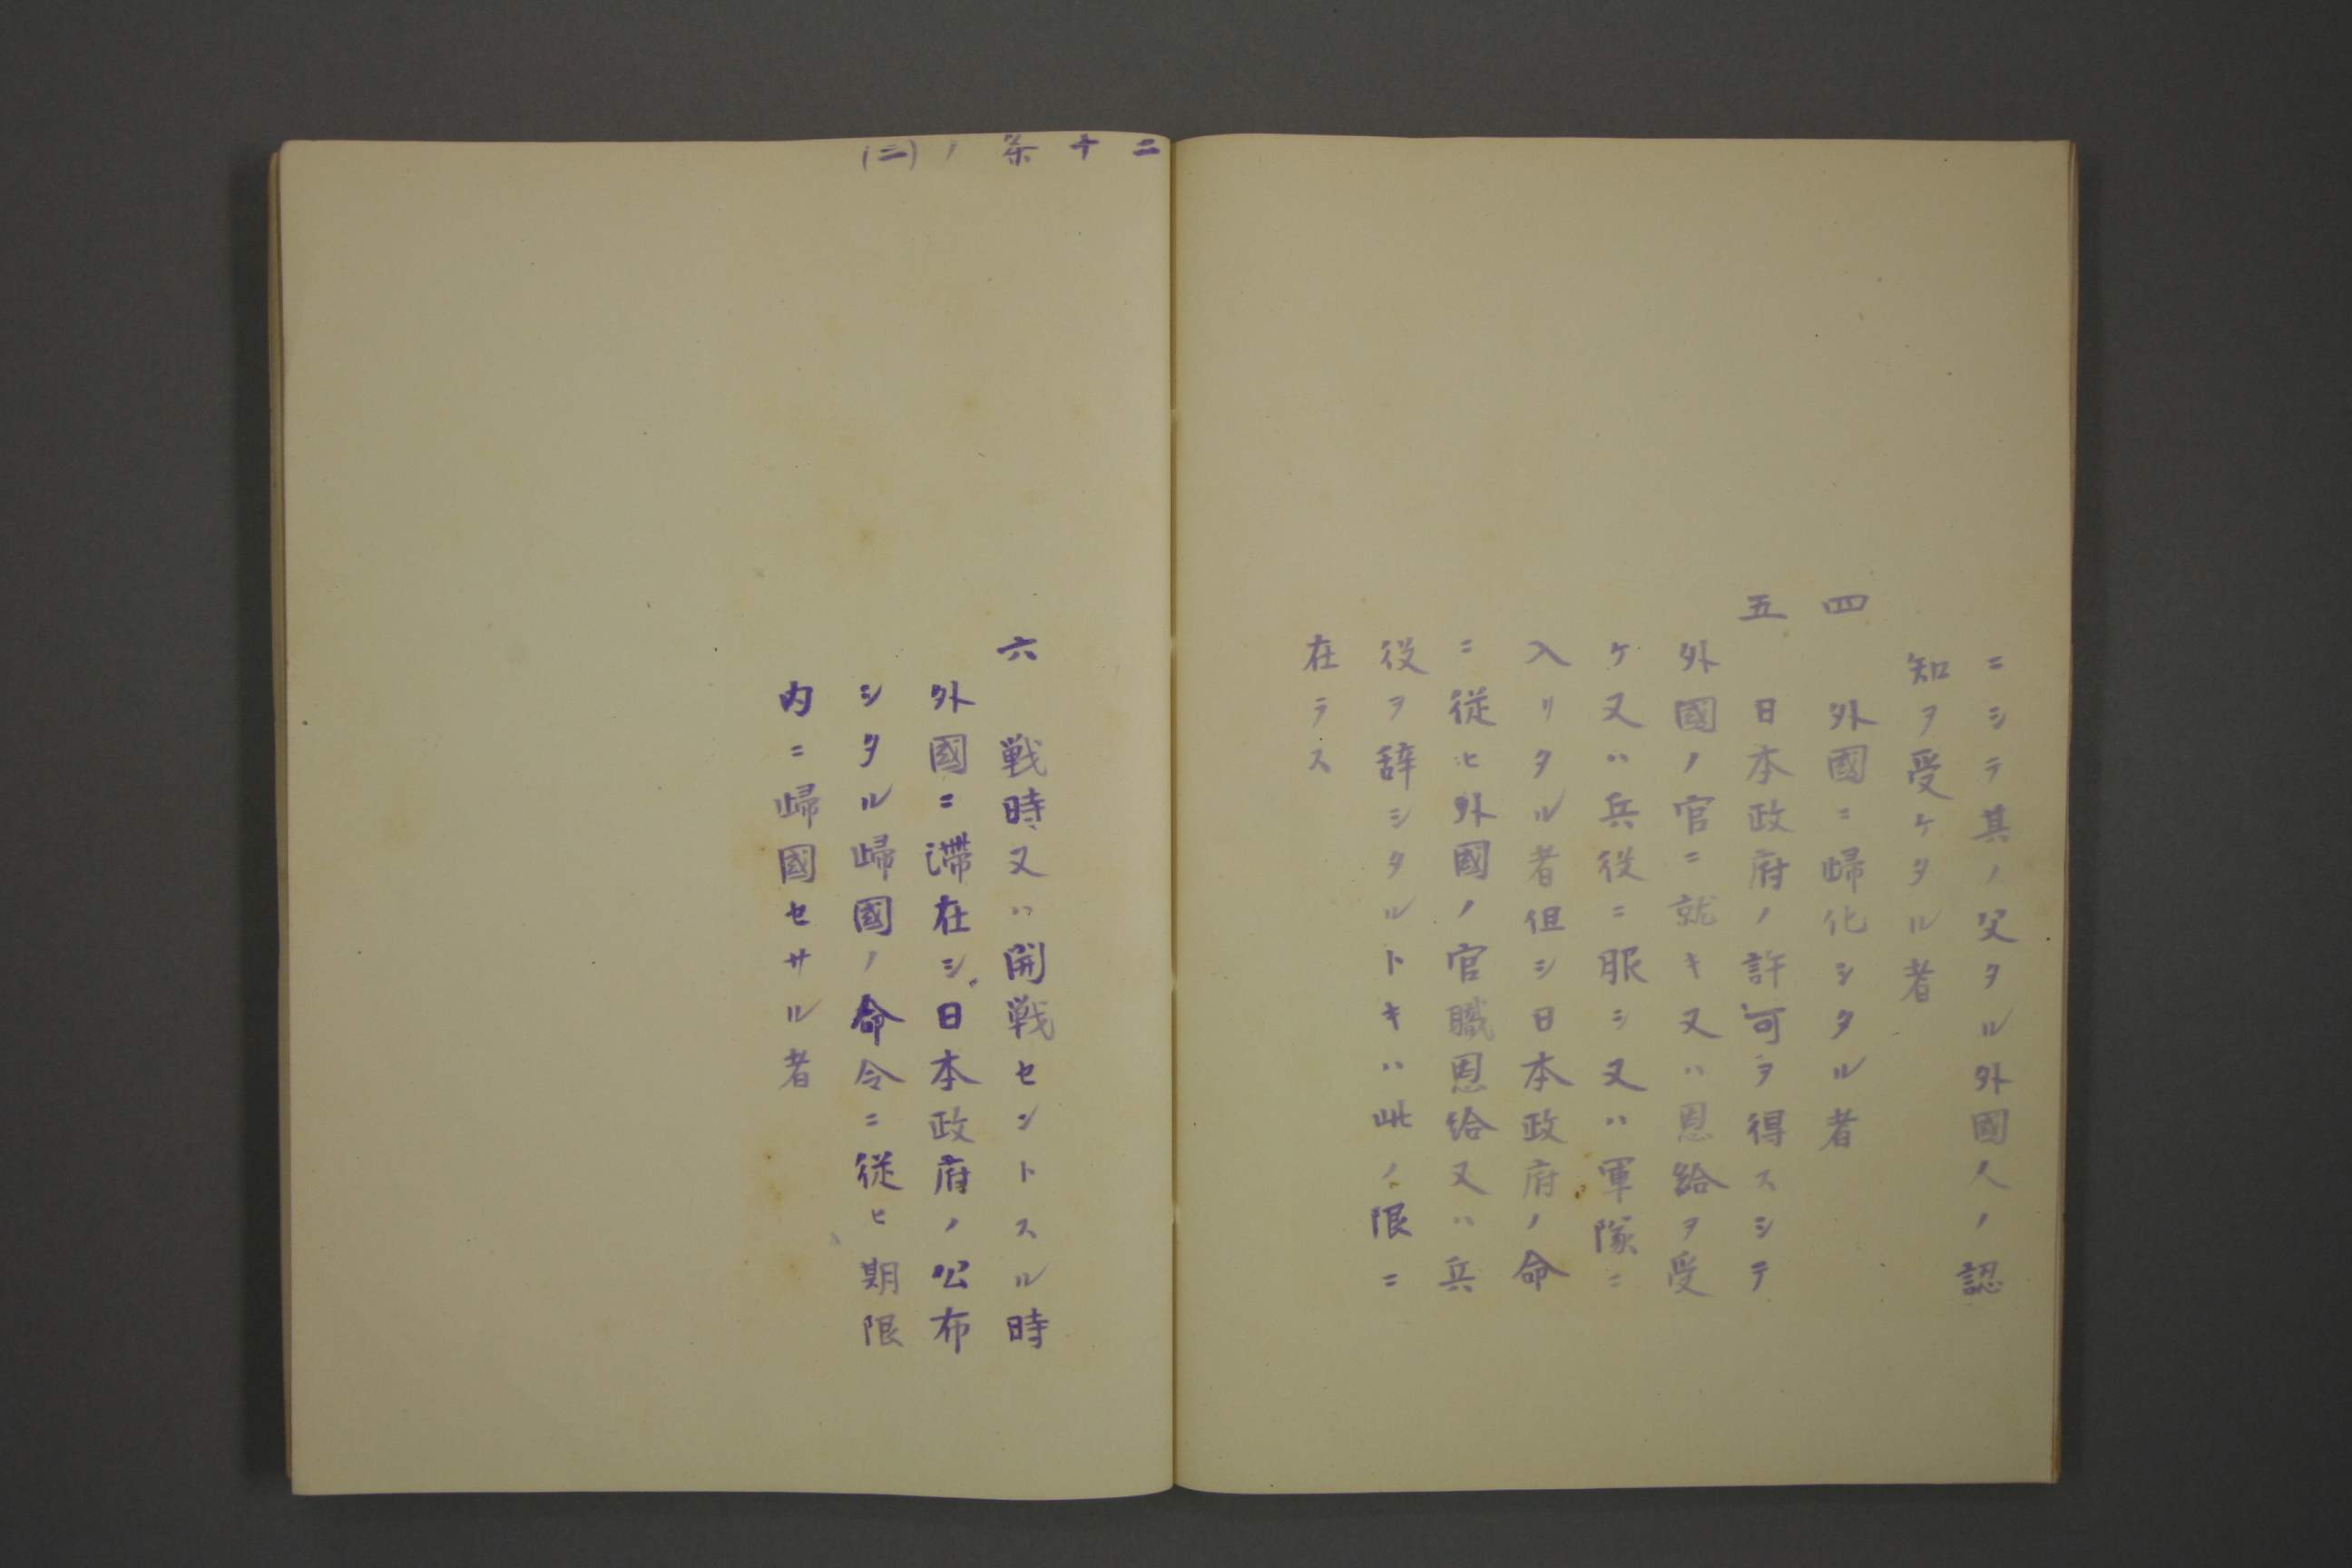 ニシテ其ノ父タル外國人ノ認
知ヲ受ケタル者
四　外國ニ歸化シタル者
五　日本政府ノ許可ヲ得スシテ
外國ノ官ニ就キ又ハ恩給ヲ受
ケ又ハ兵役ニ服シ又ハ軍隊ニ
入リタル者但シ日本政府ノ命
ニ従ヒ外國ノ官職恩給又ハ兵
役ヲ辞シタルトキハ此ノ限ニ
在ラス
二十条ノ(二)
六　戦時又ハ開戦セントスル時
外國ニ滞在シ日本政府ノ公布
シタル歸國ノ命令ニ従ヒ期限
内ニ歸國セサル者